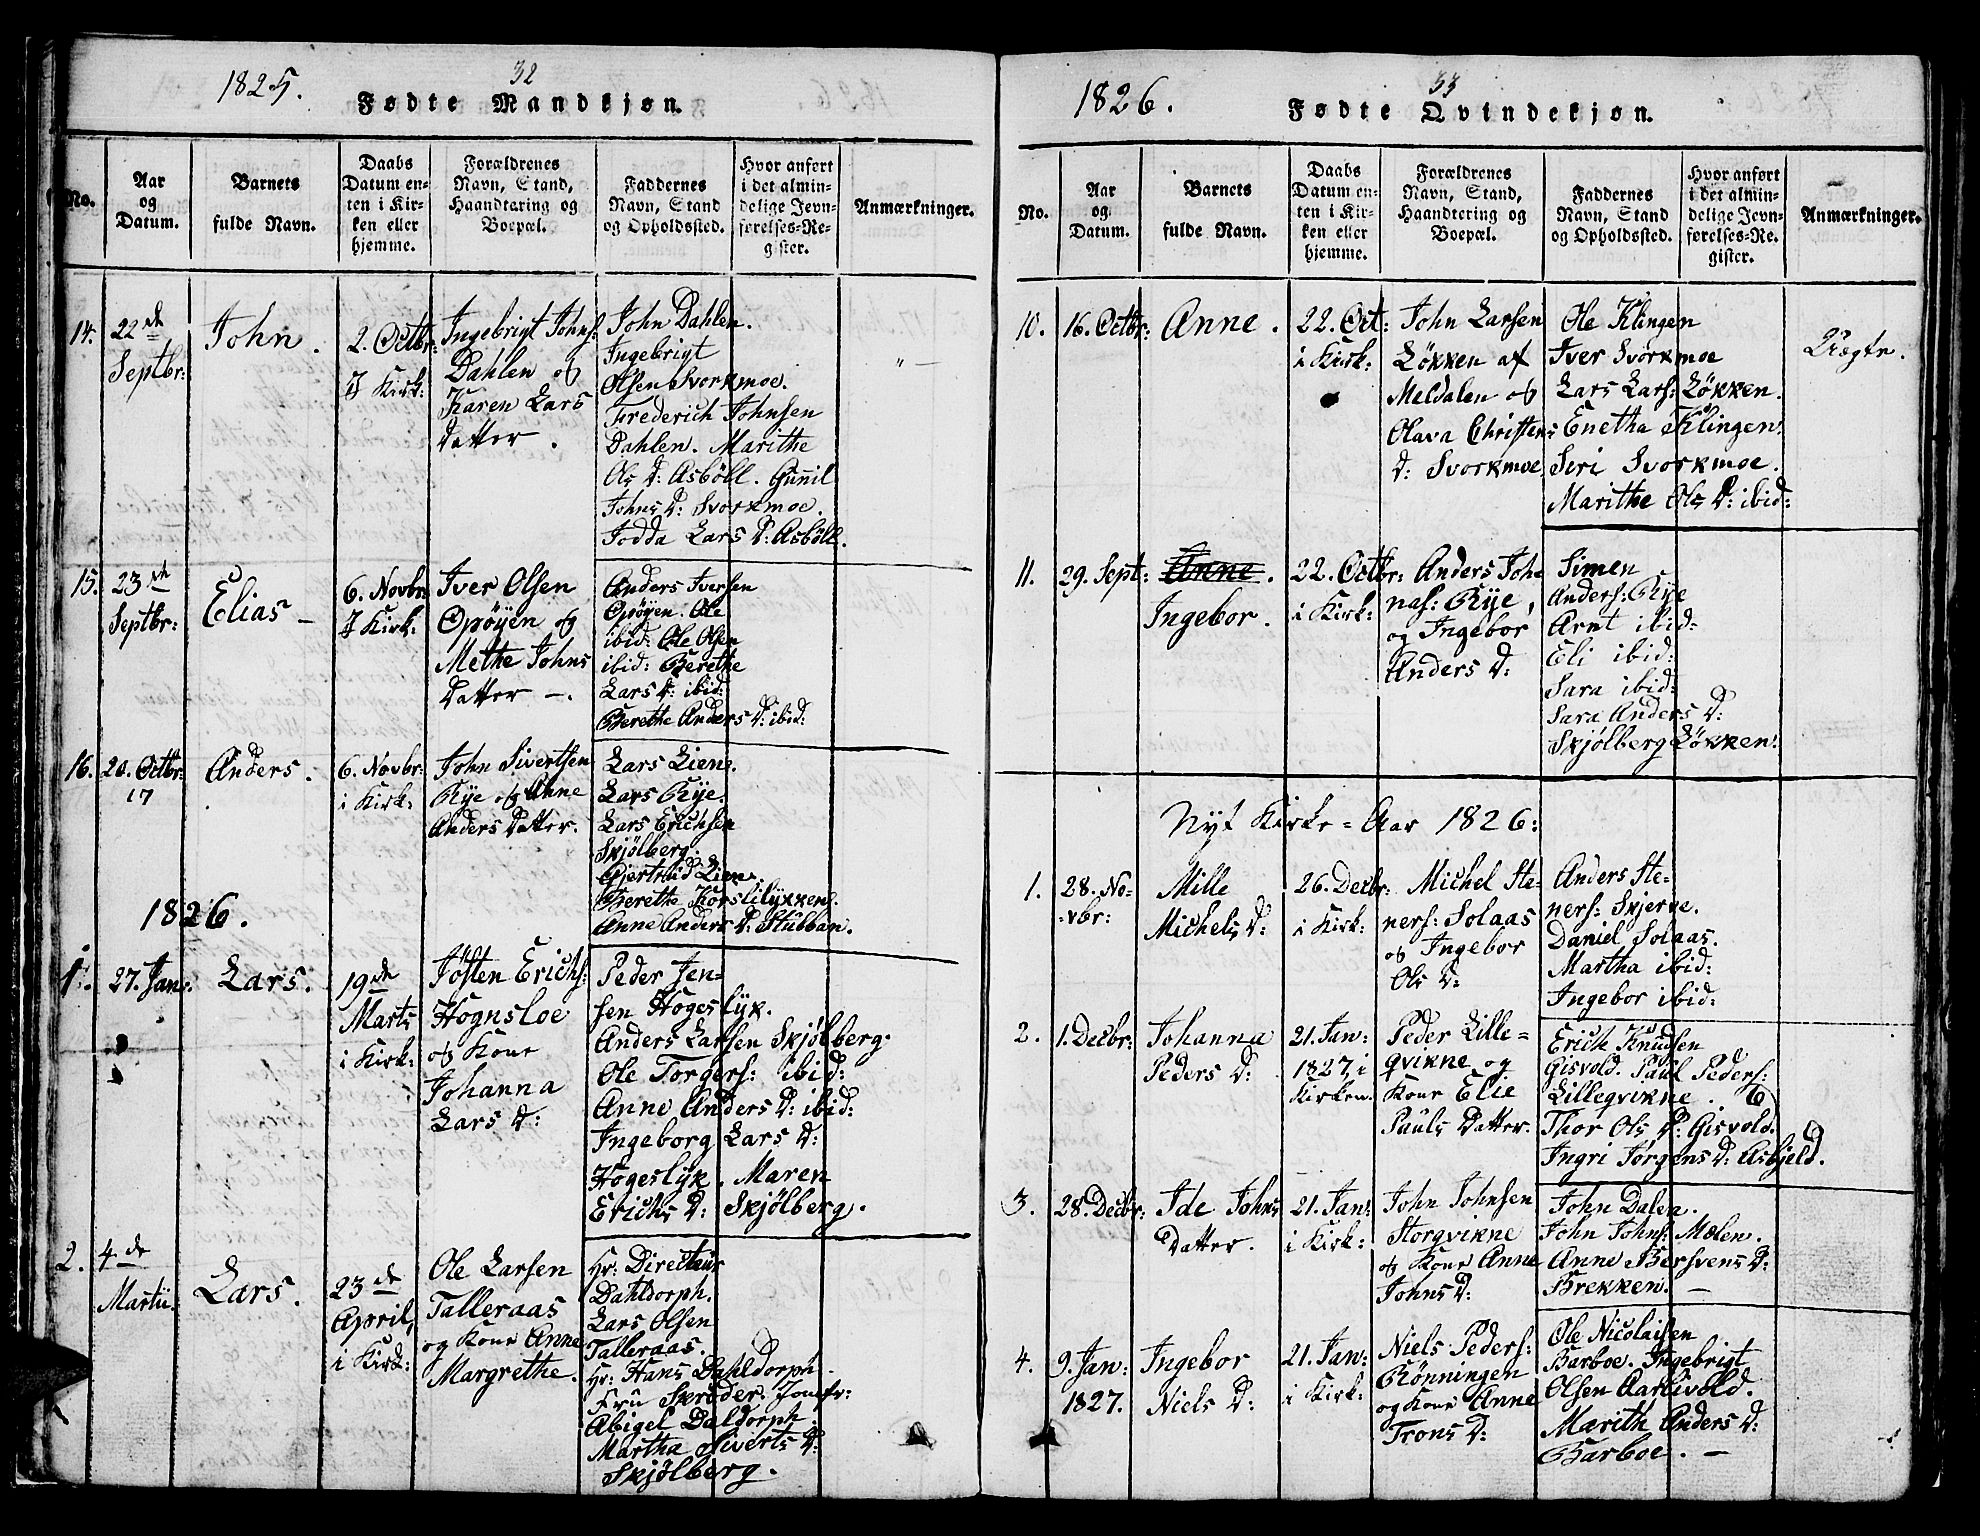 1825.
32
Fødte Mandkjøn.
No.
Aar
og
Datum.
Barnets
fulde Navn.
Daabs
Datum en-
ten i Kir-
ken eller
hjemme.
Forældrenes
Navn, Stand,
Haandtæring og
Boepæl.
Faddernes
Navn, Stand
og Opholdssted.
Hvor anført
i det almin-
delige Jevn-
førelses-Re-
gister.
Anmærkninger.
14.
22de
Septbr:
John.
2. Octbr:
I Kirk:
Ingebrigt Johns:
Dahlen og
Karen Lars
Datter.
John Dahlen.
Ingebrigt
Olsen Svorkmoe.
Frederich Johnsen
Dahlen. Marithe
Ols D: Asbøll. Gunil
Johns D: Svorkmoe.
Jodda Lars D: Asbøll.
" —
15.
23de
Septbr:
Elias —
6. Novbr:
I Kirk:
Iver Olsen
Opøyen og
Methe Johns
Datter —.
Anders Iversen
Opøyen. Ole
ibid: Ole Olsen
ibid: Berethe
Lars D: ibid:
Berethe Anders D: ibid:
16.
20. Octbr:
17
Anders.
6. Novbr:
i Kirk:
John Sivertsen
Rye og Anne
Anders Datter.
Lars Lien.
Lars Rye.
Lars Erichsen
Skjølberg.
Gjertrud Lien.
Berethe Korslilykken.
Anne Anders D: Stubban.
1826.
1.
27. Jan:
Lars.
19de
Marts
i Kirk:
Jøsten Erichs:
Hognsloe
og Kone
Johanna
Lars D:
Peder Jen-
sen Hogeslyk.
Anders Larsen Skjølberg.
Ole Torgers: ibid:
Anne Anders D: ibid:
Ingeborg Lars D:
Hogeslyk. Maren
Erichs D: Skjølberg.
2.
4de
Martii.
Lars.
23de
April,
i Kirk:
Ole Larsen
Talleraas
og Kone Anne
Margrethe.
Hr: Directeur
Dahldorph.
Lars Olsen
Talleraas.
Hr: Hans Dahldorph
Fru Skrøder. Jomfr:
Abigel Daldorph.
Martha Siverts D:
Skjølberg.
1826.
33
Fødte Qvindekjøn.
No.
Aar
og
Datum.
Barnets
fulde Navn.
Daabs
Datum en-
ten i Kir-
ken eller
hjemme.
Forældrenes
Navn, Stand,
Haandtering og
Boepæl.
Faddernes
Navn, Stand
og Opholdssted.
Hvor anført
i det almin-
delige Jevn-
førelses-Re-
gister.
Anmærkninger.
10.
16. Octbr:
Anne.
22. Oct:
i Kirk:
John Larsen
Løkken af
Meldalen og
Olava Christens
D: Svorkmoe
Ole Klingen
Iver Svorkmoe
Lars Lars: Løkken.
Enetha Klingen.
Siri Svorkmoe.
Marithe Ols D: ibid:
Uægte.
11.
29. Sept:
Anne.
Ingebor.
22. Octbr:
i Kirk:
Anders Joha
nas: Rye,
og Ingebor
Anders D:
Simen
Anders: Rye
Arnt ibid:
Eli ibid:
Sara ibid:
Sara Anders D:
Skjølberg Løkken:
Nyt Kirke-Aar 1826:
1.
28. No-
vbr:
Mille
Michels D:
26. Decbr:
i Kirk:
Michel Ste-
ners: Solaas
og Ingebor
Ols D:
Anders Ste-
ners: Skjerve.
Daniel Solaas.
Martha ibid:
Ingebor ibid:
2.
1. Decbr:
Johanna
Peders D:
21. Jan:
1827. i
Kirken.
Peder Lille=
qvikne og
Kone Elie
Pauls Datter.
Erich Knudsen
Gisvold. Paul Peders:
Lilleqvikne.
Thor Ols D: Gisvold.
Ingri Jørgens D: Asbjeld.
3.
28. Decbr:
Ide Johns
Datter.
21. Jan:
i Kirk:
John Johnsen
Storqvikne
og Kone Anne
Johns D:
John Dalen.
John Johns: Mælen.
Anne Bersvens D:
Brekken. —
4.
9. Jan:
1827.
Ingebor
Niels D:
21. Jan:
i Kirk:
Niels Peders:
Rønningen
og Kone Anne
Trons D:
Ole Nicolaisen
Barboe. Ingebrigt
Olsen Aarlivold.
Marith Anders D:
Barboe. —